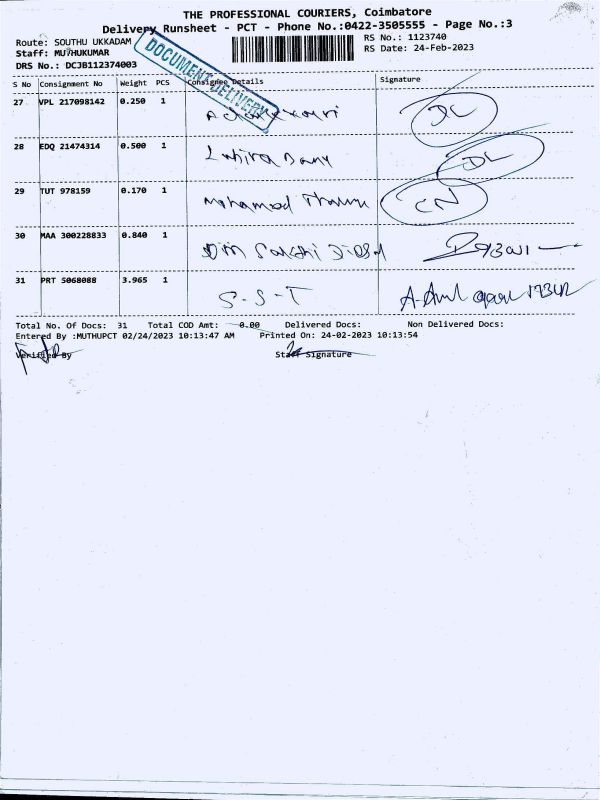 THE PROFESSIONAL COURIERS, Coimbatore
Delivery Runsheet - PCT - Phone No.:0422-3505555 - Page No.:3
Route: SOUTHU UKKADAM
RS No.: 1123740
Staff: MUTHUKUMAR
RS Date: 24-Feb-2023
DRS No.: DCJB112374003
DOCUMENT DELIVERY
S No Consignment No Weight PCS Consignee Details Signature
27 VPL 217098142 0.250 1 DL
28 EDQ 21474314 0.500 1 DL
29 TUT 978159 0.170 1 Mohamed CN
30 MAA 300228833 0.840 1 Om Sakthi
31 PRT 5068088 3.965 1 S-S-T
Total No. Of Docs: 31 Total COD Amt: 0.00 Delivered Docs: Non Delivered Docs:
Entered By :MUTHUPCT 02/24/2023 10:13:47 AM Printed On: 24-02-2023 10:13:54
Verified By Staff Signature